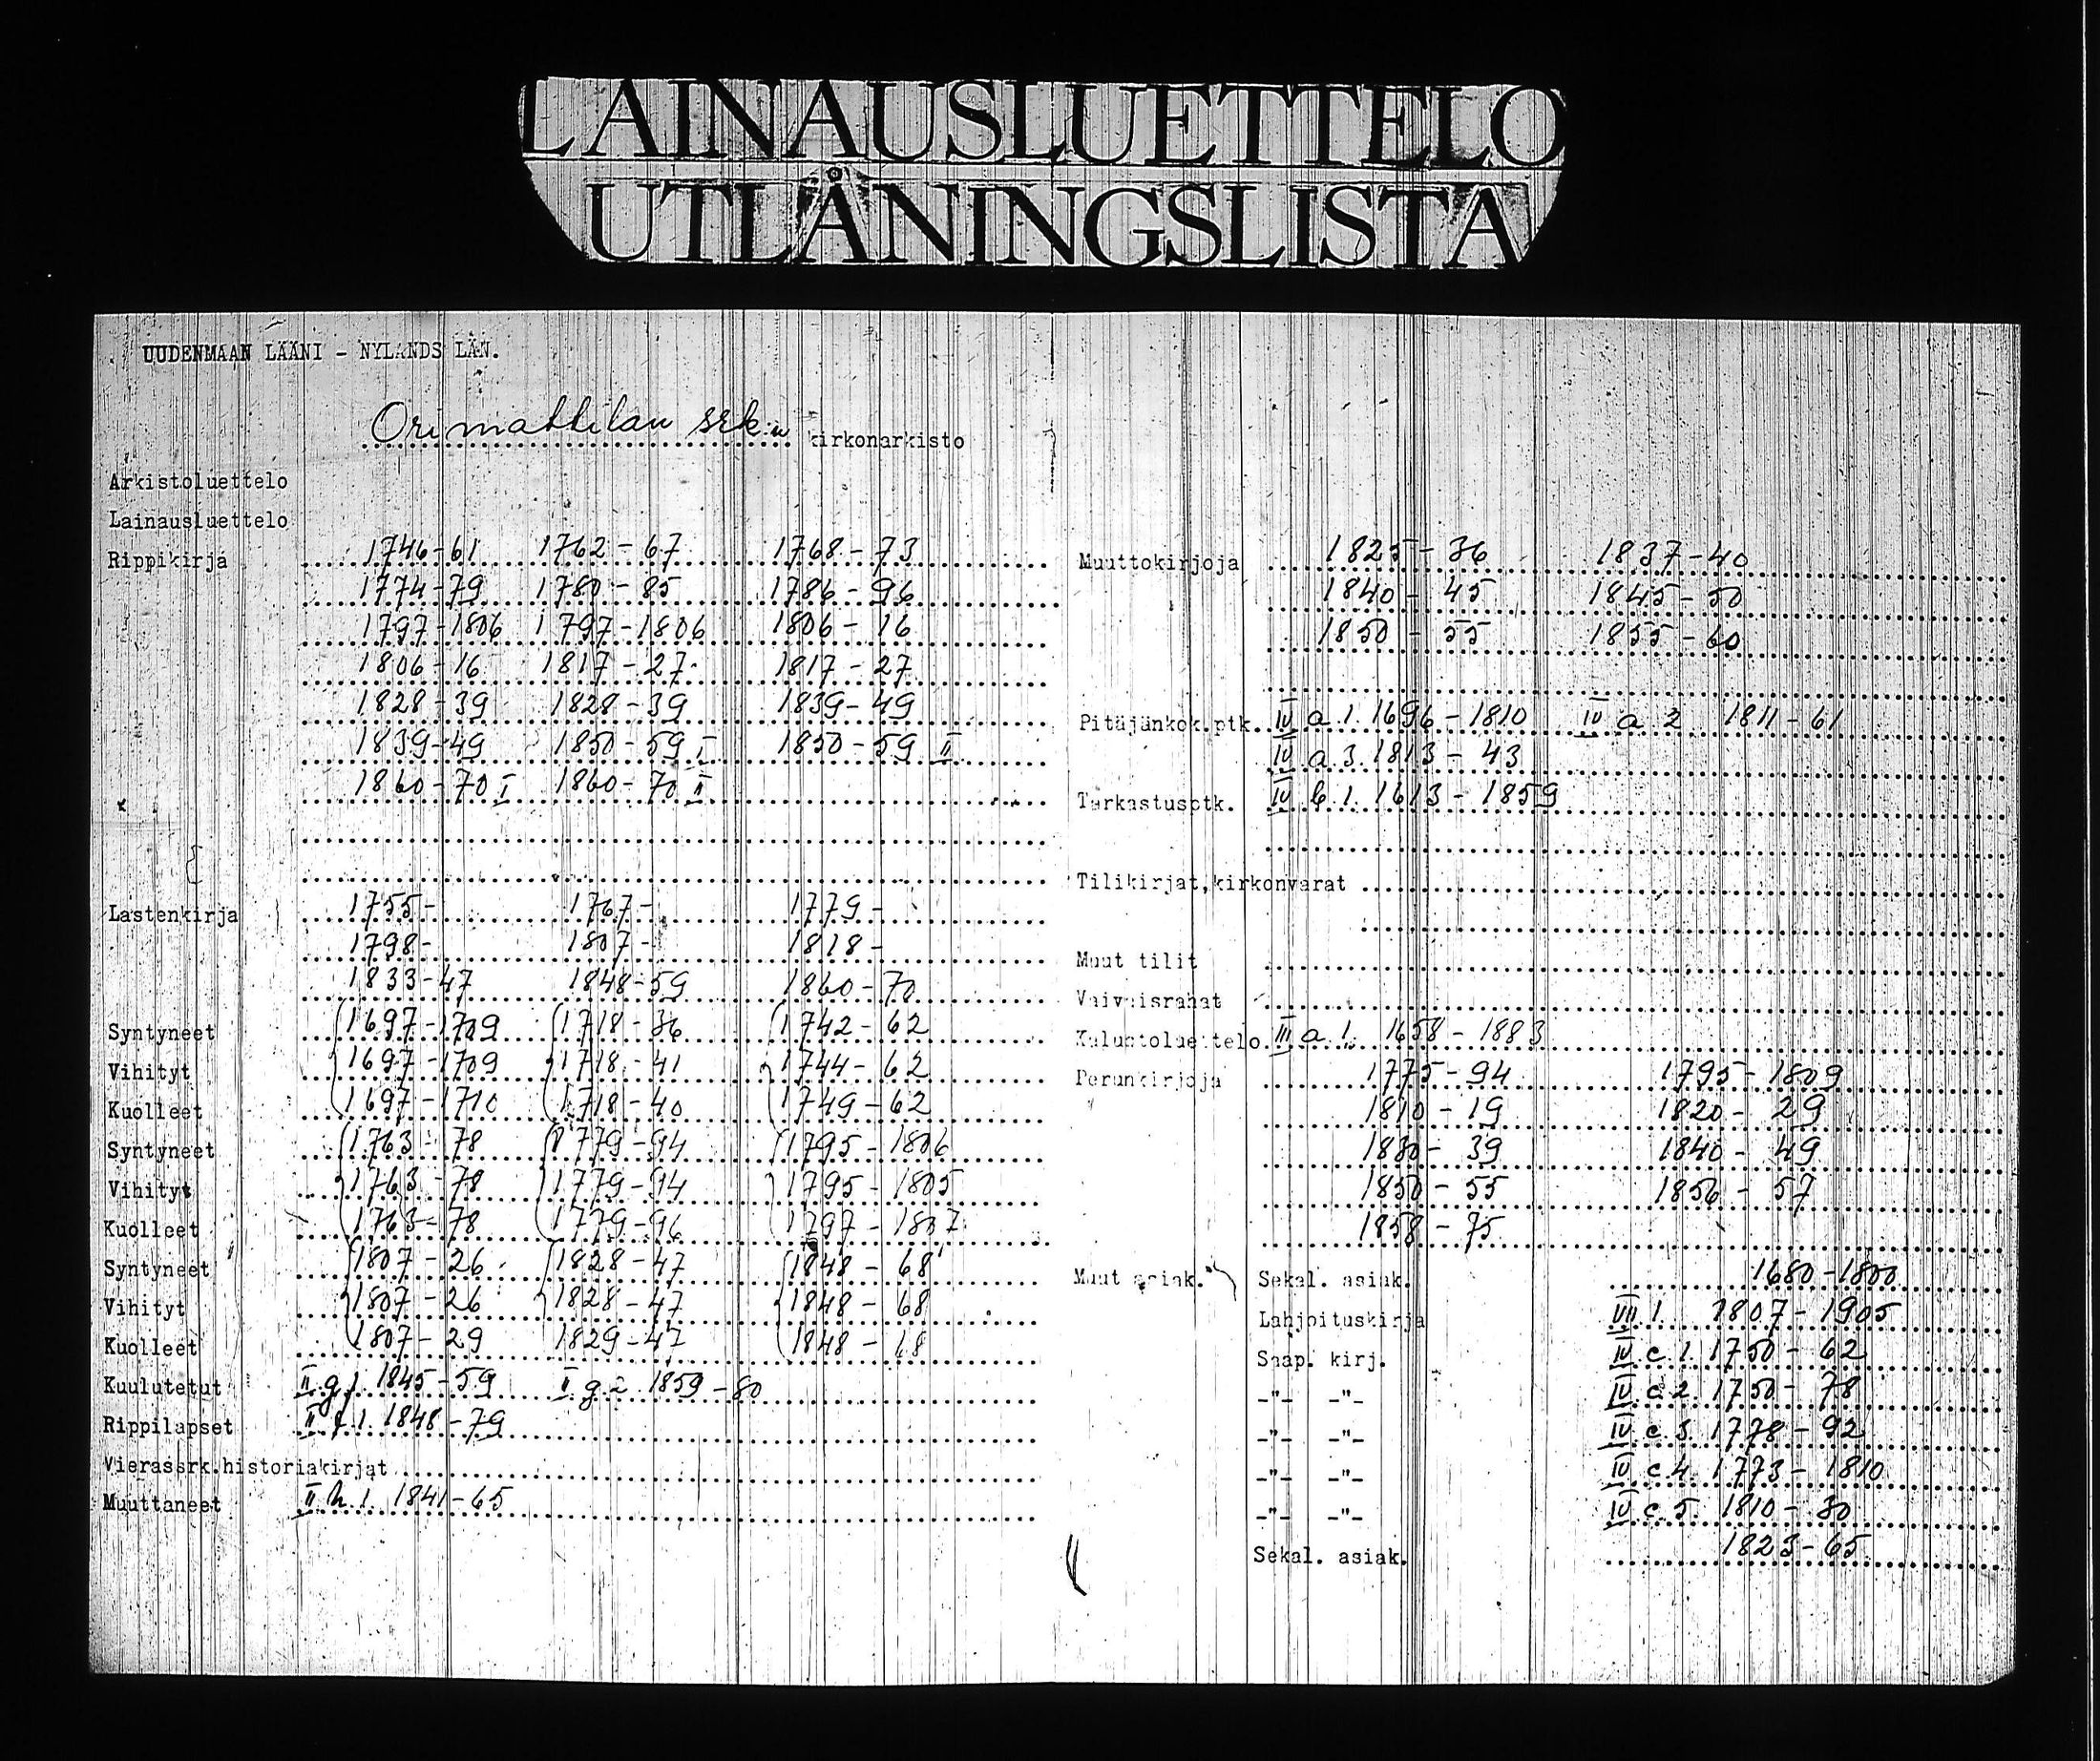 LAINAUSLUETTELO
UTLÅNINGSLISTA
UUDENMAAN LÄÄNI - NYLANDS LÄN.
Orimattilan srk:n kirkonarkisto
Arkistoluettelo
Lainausluettelo
Rippikirja 1746-61 1762-67 1768-73
1774-79 1780-85 1786-96
1797-1806 1797-1806 1806-16
1806-16 1817-27 1817-27
1828-39 1828-39 1839-49
1839-49 1850-59 I 1850-59 II
1860-70 I 1860-70 II
Lastenkirja 1755- 1767- 1779-
1798- 1807- 1818-
1833-47 1848-59 1860-70
Syntyneet 1697-1709 1718-36 1742-62
Vihityt 1697-1709 1718-41 1744-62
Kuolleet 1697-1710 1718-40 1749-62
Syntyneet 1763-78 1779-94 1795-1806
Vihityt 1763-78 1779-94 1795-1805
Kuolleet 1763-78 1779-96 1797-1807
Syntyneet 1807-26 1828-47 1848-68
Vihityt 1807-26 1828-47 1848-68
Kuolleet 1807-29 1829-47 1848-68
Kuulutetut II g 1. 1845-59 II g 2 1859-80
Rippilapset II f. 1. 1848-79
Vierassrk.historiakirjat
Muuttaneet II h. 1. 1841-65
Muuttokirjoja 1825-36 1837-40
1840-45 1845-50
1850-55 1855-60
Pitäjänkok.ptk. IV a. 1. 1696-1810 IV a 2 1811-61
IV a 3. 1813-43
Tarkastusptk. IV b. 1. 1613-1859
Tilikirjat,kirkonvarat
Muut tilit
Vaivaisrahat
Kaluntoluettelo III a 1. 1658-1883
Perunkirjoja 1775-94 1795-1809
1810-19 1820-29
1830-39 1840-49
1850-55 1856-57
1858-75
Muut asiak. Sekal. asiak. 1680-1800
Lahjoituskirja VII 1. 1807-1905
Saap. kirj. IV c 1. 1750-62
-"- -"- IV c 2. 1750-78
-"- -"- IV c 3. 1778-92
-"- -"- IV c. 4. 1773-1810
-"- -"- IV c 5. 1810-80
Sekal. asiak. 1823-65